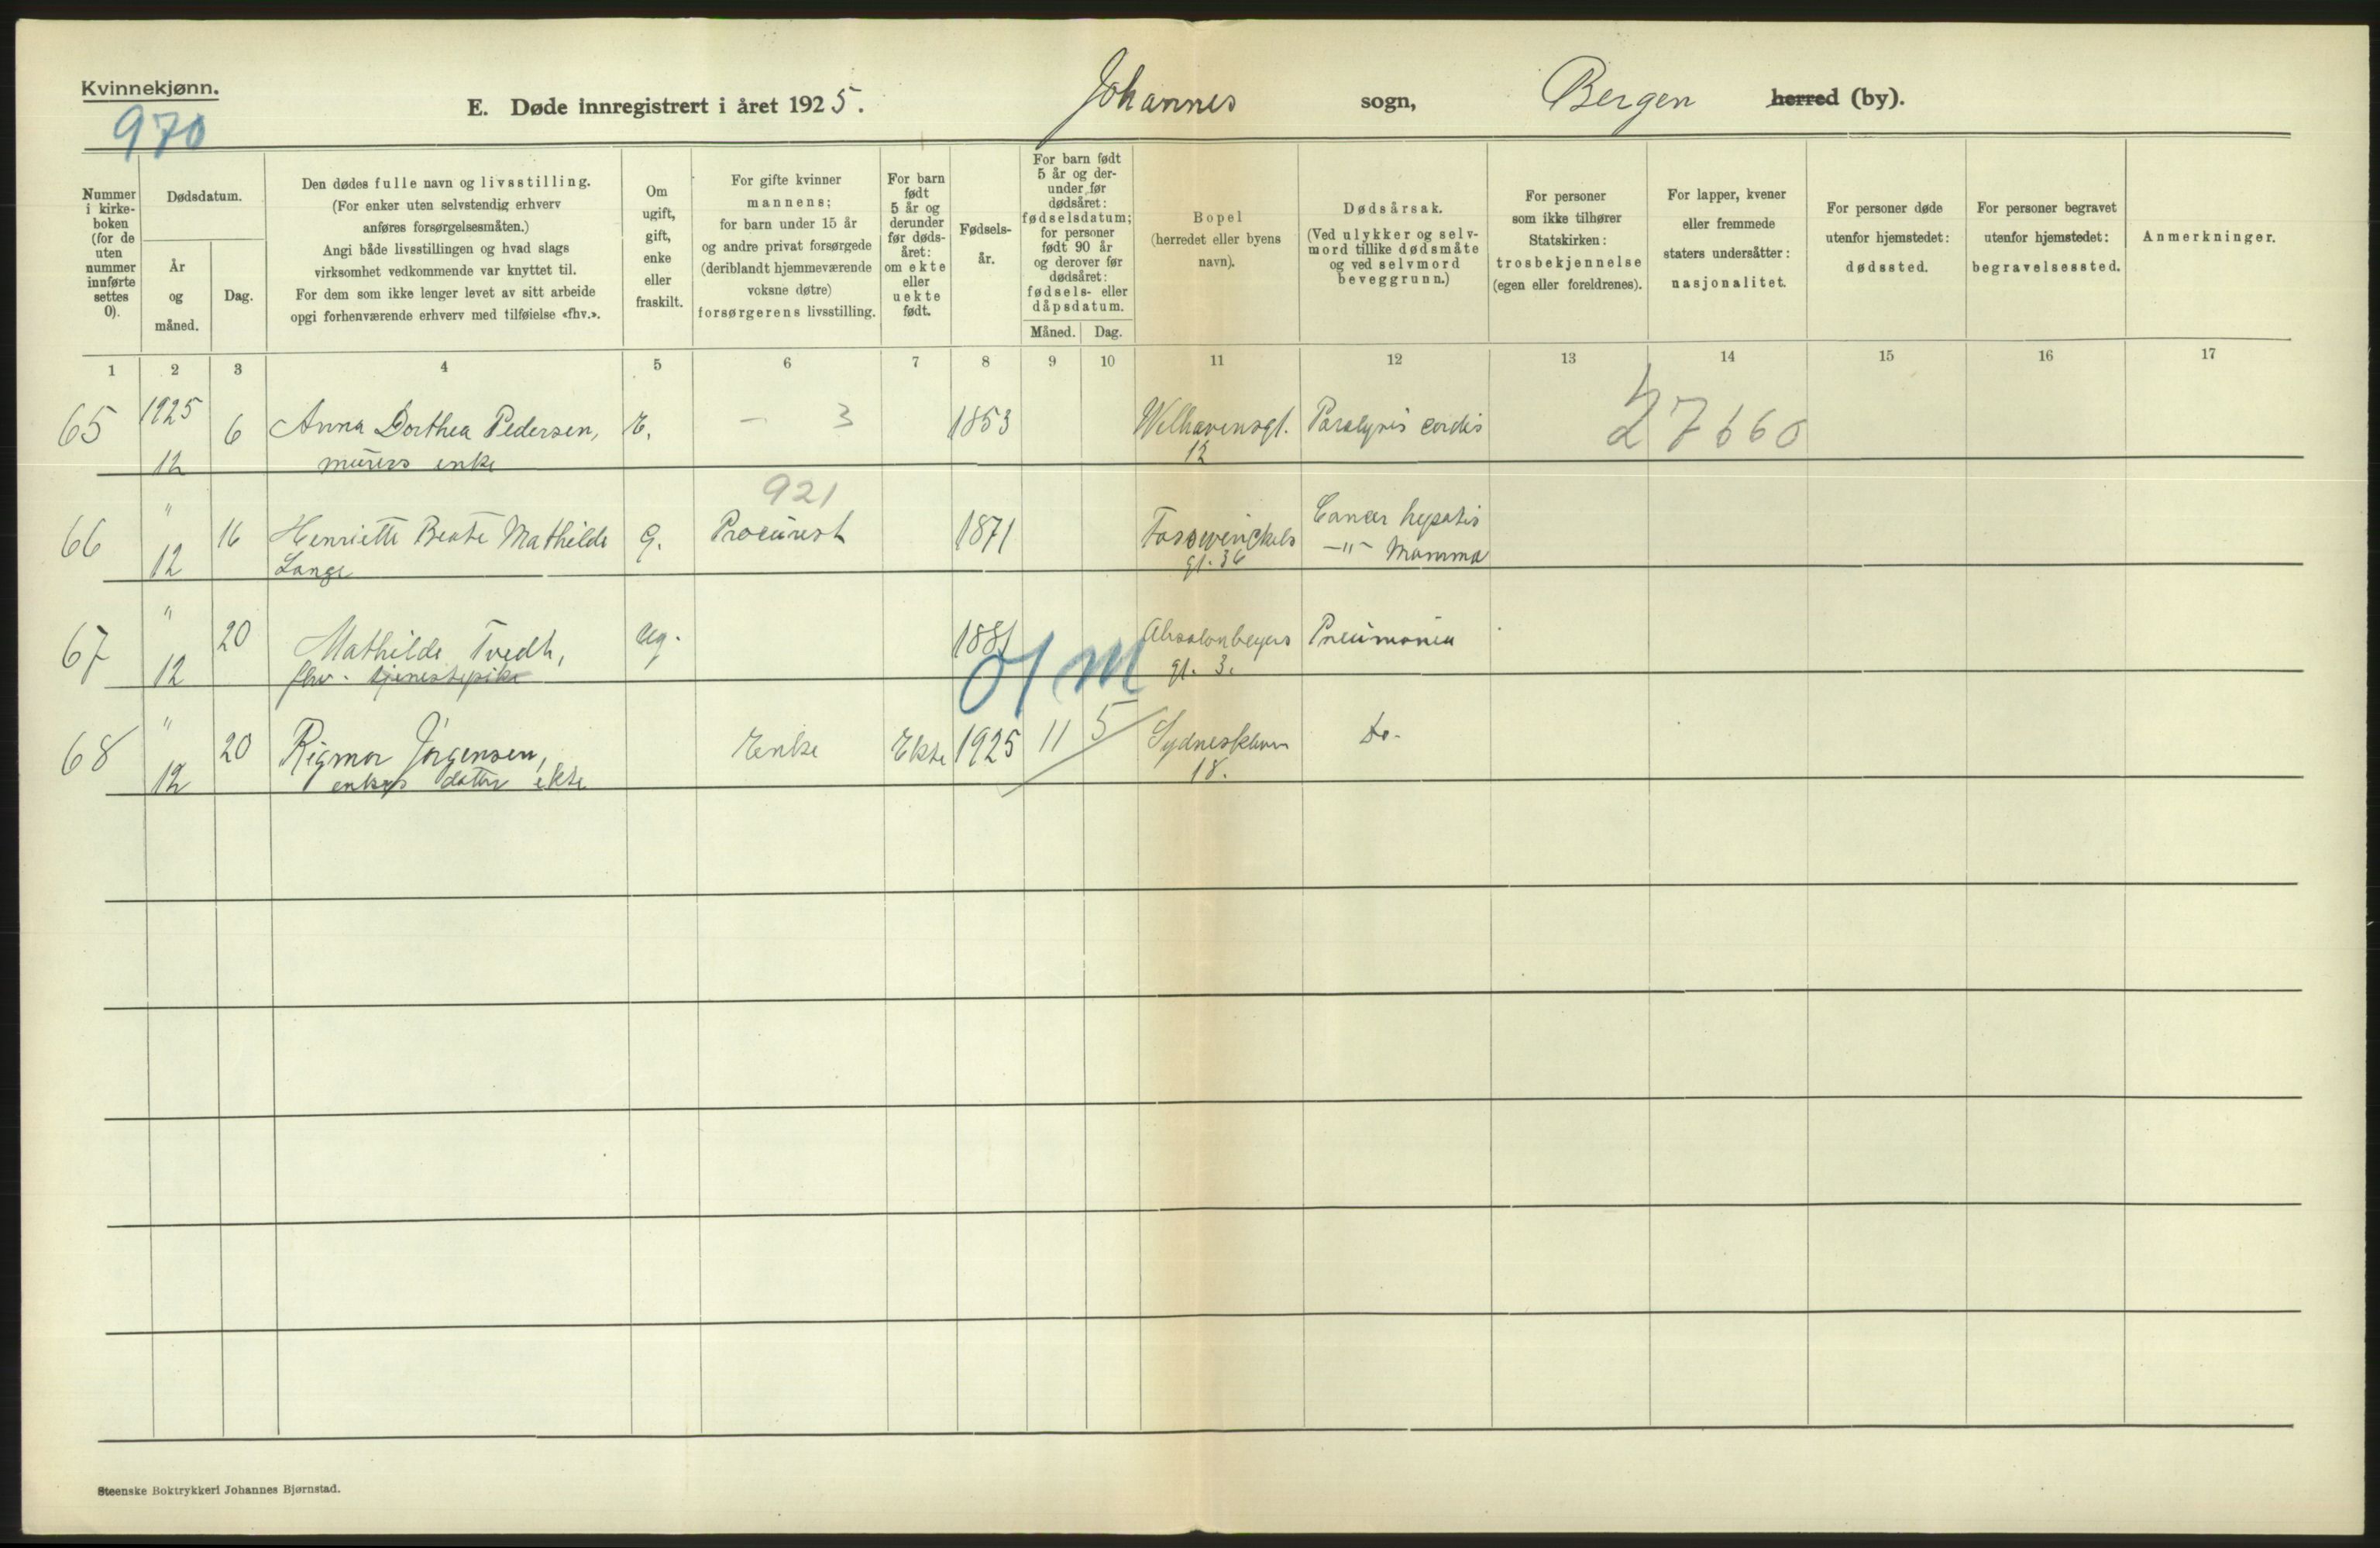 Kvinnekjønn.
970
E. Døde innregistrert i året 1925. Johannes sogn, Bergen herred (by).
Nummer i kirke-
boken
(for de
uten
nummer
innførte
settes
0).
Dødsdatum.
År
og
måned.
Dag.
Den dødes fulle navn og livsstilling.
(For enker uten selvstendig erhverv
anføres forsørgelsesmåten.)
Angi både livsstillingen og hvad slags
virksomhet vedkommende var knyttet til.
For dem som ikke lenger levet av sitt arbeide
opgi forhenværende erhverv med tilføielse «fhv.».
Om
ugift,
gift,
enke
eller
fraskilt.
For gifte kvinner
mannens;
for barn under 15 år
og andre privat forsørgede
(deriblandt hjemmeværende
voksne døtre)
forsørgerens livsstilling.
For barn
født
5 år og
derunder
før døds-
året:
om ekte
eller
uekte
født.
Fødsels-
år.
For barn født
5 år og der-
under før
dødsåret:
fødselsdatum;
for personer
født 90 år
og derover før
dødsåret:
fødsels- eller
dåpsdatum.
Måned. Dag.
Bopel
(herredet eller byens
navn).
Dødsårsak.
(Ved ulykker og selv-
mord tillike dødsmåte
og ved selvmord
beveggrunn.)
For personer
som ikke tilhører
Statskirken:
trosbekjennelse
(egen eller foreldrenes).
For lapper, kvener
eller fremmede
staters undersåtter:
nasjonalitet.
For personer døde
utenfor hjemstedet:
dødssted.
For personer begravet
utenfor hjemstedet:
begravelsessted.
Anmerkninger.
1 2 3 4 5 6 7 8 9 10 11 12 13 14 15 16 17
65 1925 6 Anna Dorthea Pedersen, E. — 3 1853 Welhavensgt. Paralysis cordis 27660
12 murers enke 12
921
66 " 16 Henriette Beate Mathilde G. Procurist 1871 Fosswinckels Cancer hepatis
12 Lange gt. 36 —"— Mamma
67 " 20 Mathilde Tvedt, Ug. 1881 Absalonbeyers Pneumonia
12 fhv. tjenestepike gt. 3.
68 " 20 Rigmor Jørgensen, Enke Ekte 1925 11 5 Sydneskleven Do.
12 enkes datter ekte 18.
Steenske Boktrykkeri Johannes Bjørnstad.